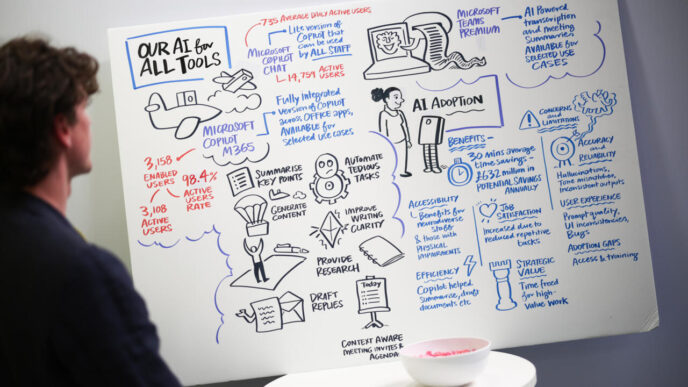 OUR AI for
ALL TOOLS
735 AVERAGE DAILY ACTIVE USERS
MICROSOFT
COPILOT
CHAT
Lite version of
Copilot that
can be used
by ALL STAFF
14,759 ACTIVE
USERS
MICROSOFT
COPILOT
M365
Fully integrated
version of Copilot
across Office apps,
AVAILABLE for
selected use cases
3,158
ENABLED
USERS
98.4%
ACTIVE
USERS
RATE
3,108
ACTIVE
USERS
SUMMARISE
KEY POINTS
GENERATE
CONTENT
AUTOMATE
TEDIOUS
TASKS
IMPROVE
WRITING
CLARITY
PROVIDE
RESEARCH
DRAFT
REPLIES
Today
CONTEXT AWARE
MEETING INVITES &
AGENDA
MICROSOFT
TEAMS
PREMIUM
AI Powered
transcription
and meeting
Summaries
AVAILABLE FOR
SELECTED USE
CASES
AI ADOPTION
BENEFITS
30 mins average
time savings -
£632 million in
POTENTIAL SAVINGS
ANNUALLY
ACCESSIBILITY
Benefits for
neurodiverse
staff
& those with
PHYSICAL
IMPAIRMENTS
JOB
SATISFACTION
Increased due to
reduced repetitive
tasks
EFFICIENCY
Copilot helped
Summarise, draft
documents etc
STRATEGIC
VALUE
Time freed for
high-
value work
CONCERNS
and
LIMITATIONS
ACCURACY
and
RELIABILITY
Hallucinations,
Tone mismatches,
inconsistent outputs
USER EXPERIENCE
Prompt quality,
UI inconsistencies,
Bugs
ADOPTION GAPS
Access & training